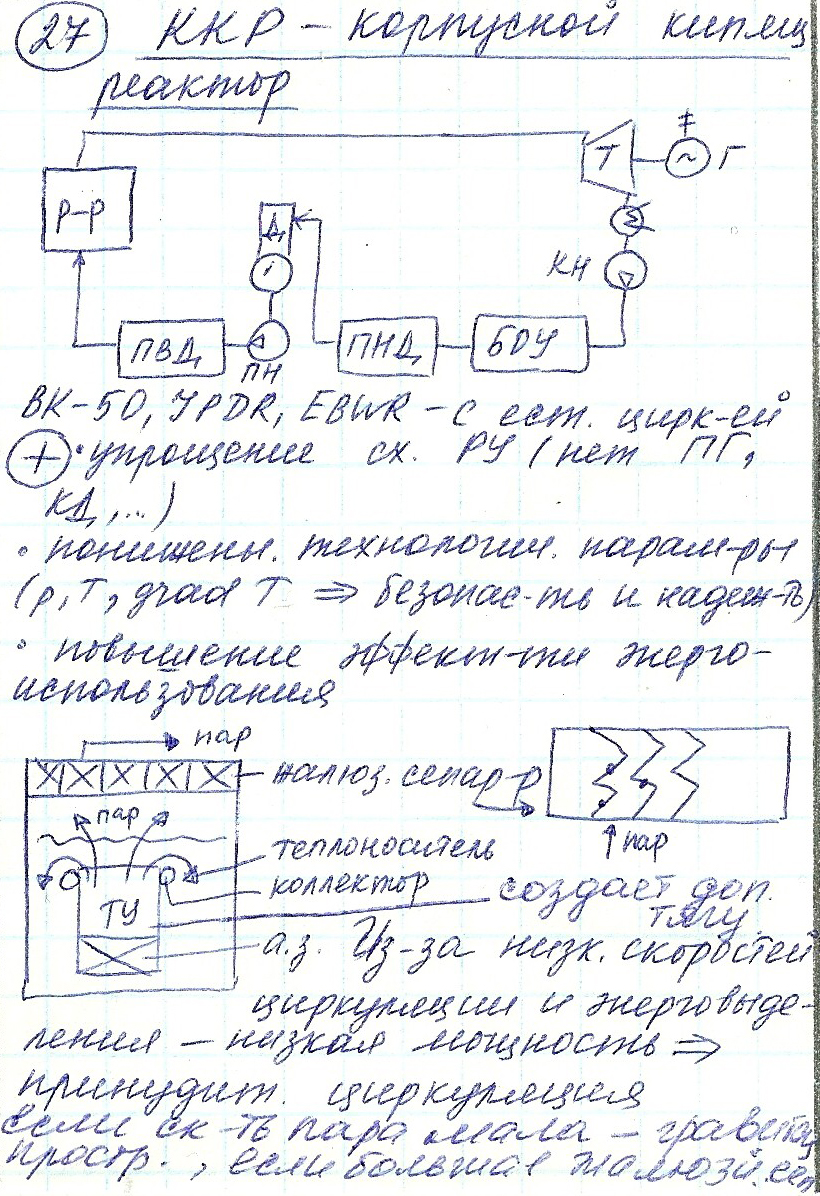 27 ККР – корпусной кипящ
реактор
Т
Г
р-р
Д
КН
ПВД
ПН
ПНД
БОУ
ВК-50, JPDR, EBWR – с ест. цирк-ей
+ • упрощение сх. РУ (нет ПГ,
КД, ...)
• понижены. технологич. парам-ры
(p, T, grad T ⇒ безопас-ть и надеж-ть)
• повышение эффект-ти энерго-
использования
пар
жалюз. сепар-р
пар
пар
теплоноситель
коллектор
создает доп.
тягу
ТУ
а.з. Из-за низк. скоростей
циркуляции и энерговыде-
ления – низкая мощность ⇒
принудит. циркуляция
если ск-ть пара мала – гравитац
простр., если большая жалюзи. сеп